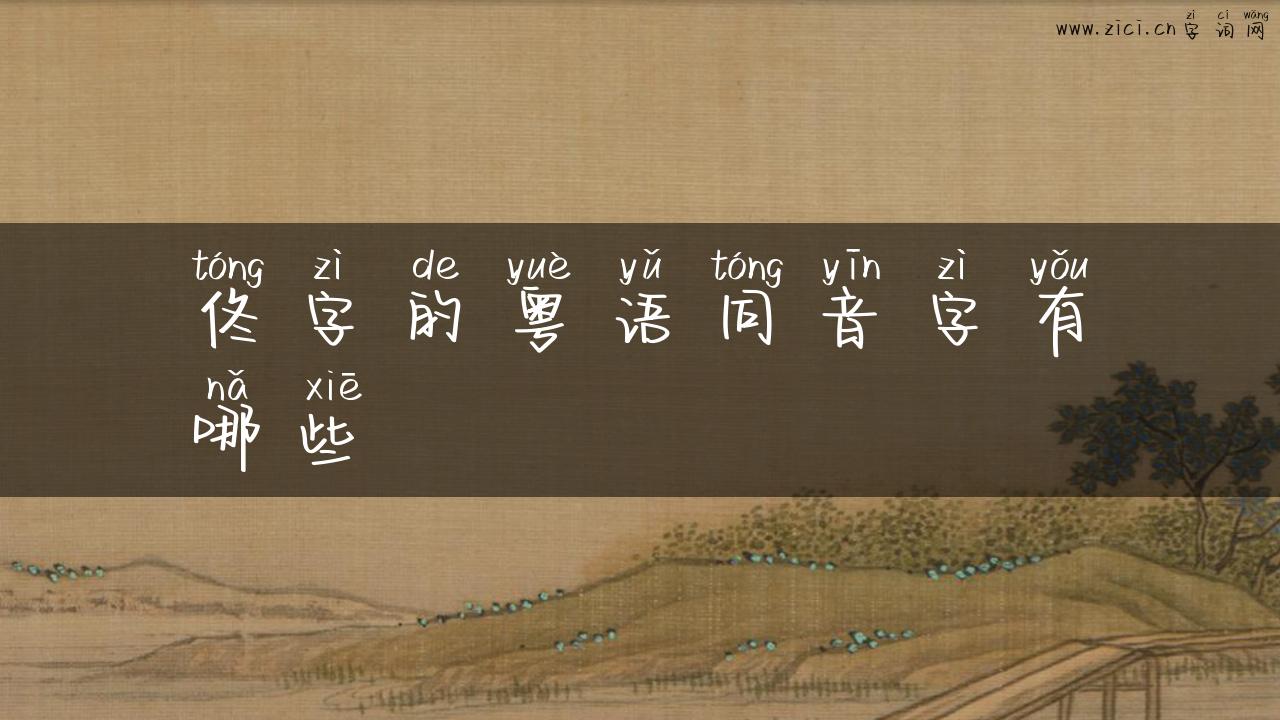 zì cí wǎng
www.zici.cn字词网
tóng zì de yuè yǔ tóng yīn zì yǒu
佟字的粤语同音字有
nǎ xiē
哪些